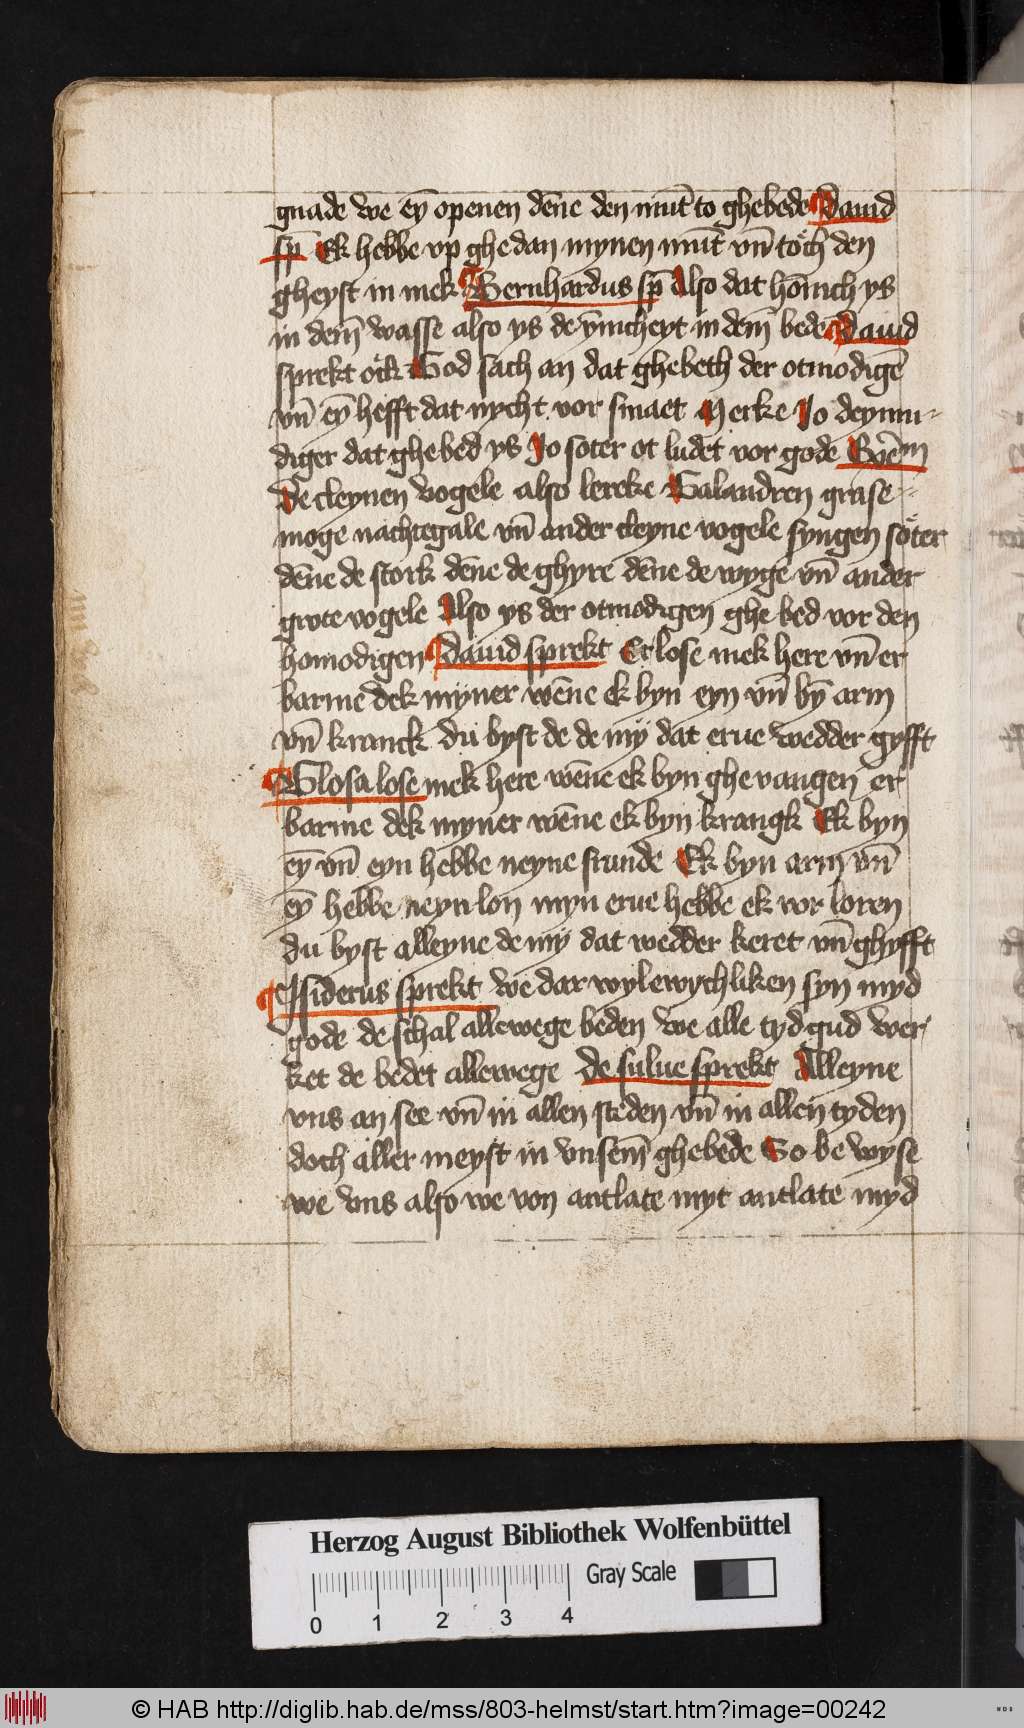 gnade we eȳ openen dēne den mūt to ghebede Dauid
sp̄ Ek hebbe vp ghe dan mynen mūt vn̄ toͤch den
gheyst in mek Bernhardus sp̄ Also dat hōnich ys
in dem̄ wasse also ys de ȳnicheyt in dem̄ bede Dauid
sprekt oͤck God sach an dat ghebeth der otmodigē
vn̄ eȳ hefft dat nycht vor smaet Merke Jo deymu⸗
diger dat ghebed ys Jo soter ot ludet vor gode
De cleynen vogele also lercke Galandren grase⸗
moge nachtegale vn̄ ander cleyne vogele syngen soͤter
dēne de stork dēne de ghyre dēne de wyge vn̄ ander
grote vogele Also ys der otmodigen ghe bed vor den
homodigen Dauid sprekt Erlose mek here vn̄ er
barme dek myner wēne ek byn eyn vn̄ bȳ arm
vn̄ kranck du byst de de my dat erue wedder gyfft
Glosa lose mek here wēne ek byn ghe vangen er
barme dek myner wēne ek byn krangk Ek byn
eȳ vn̄ eyn hebbe neyne frunde Ek byn arm vn̄
eȳ hebbe neyn lon myn erue hebbe ek vor loren
du byst alleyne de my dat wedder keret vn̄ ghyfft
Isiderus sprekt we dar wylewychliken syn myd
gode de schal allewege beden we alle tyd gud wer⸗
ket de bedet allewege de sulue sprekt Alleyne
vns an see vn̄ in allen steden vn̄ in allen tyden
doch aller meyst in vnsem̄ ghebede So be wyse
we vns also we von antlate myt antlate myd
Herzog August Bibliothek Wolfenbüttel
Gray Scale
0 1 2 3 4
© HAB http://diglib.hab.de/mss/803-helmst/start.htm?image=00242